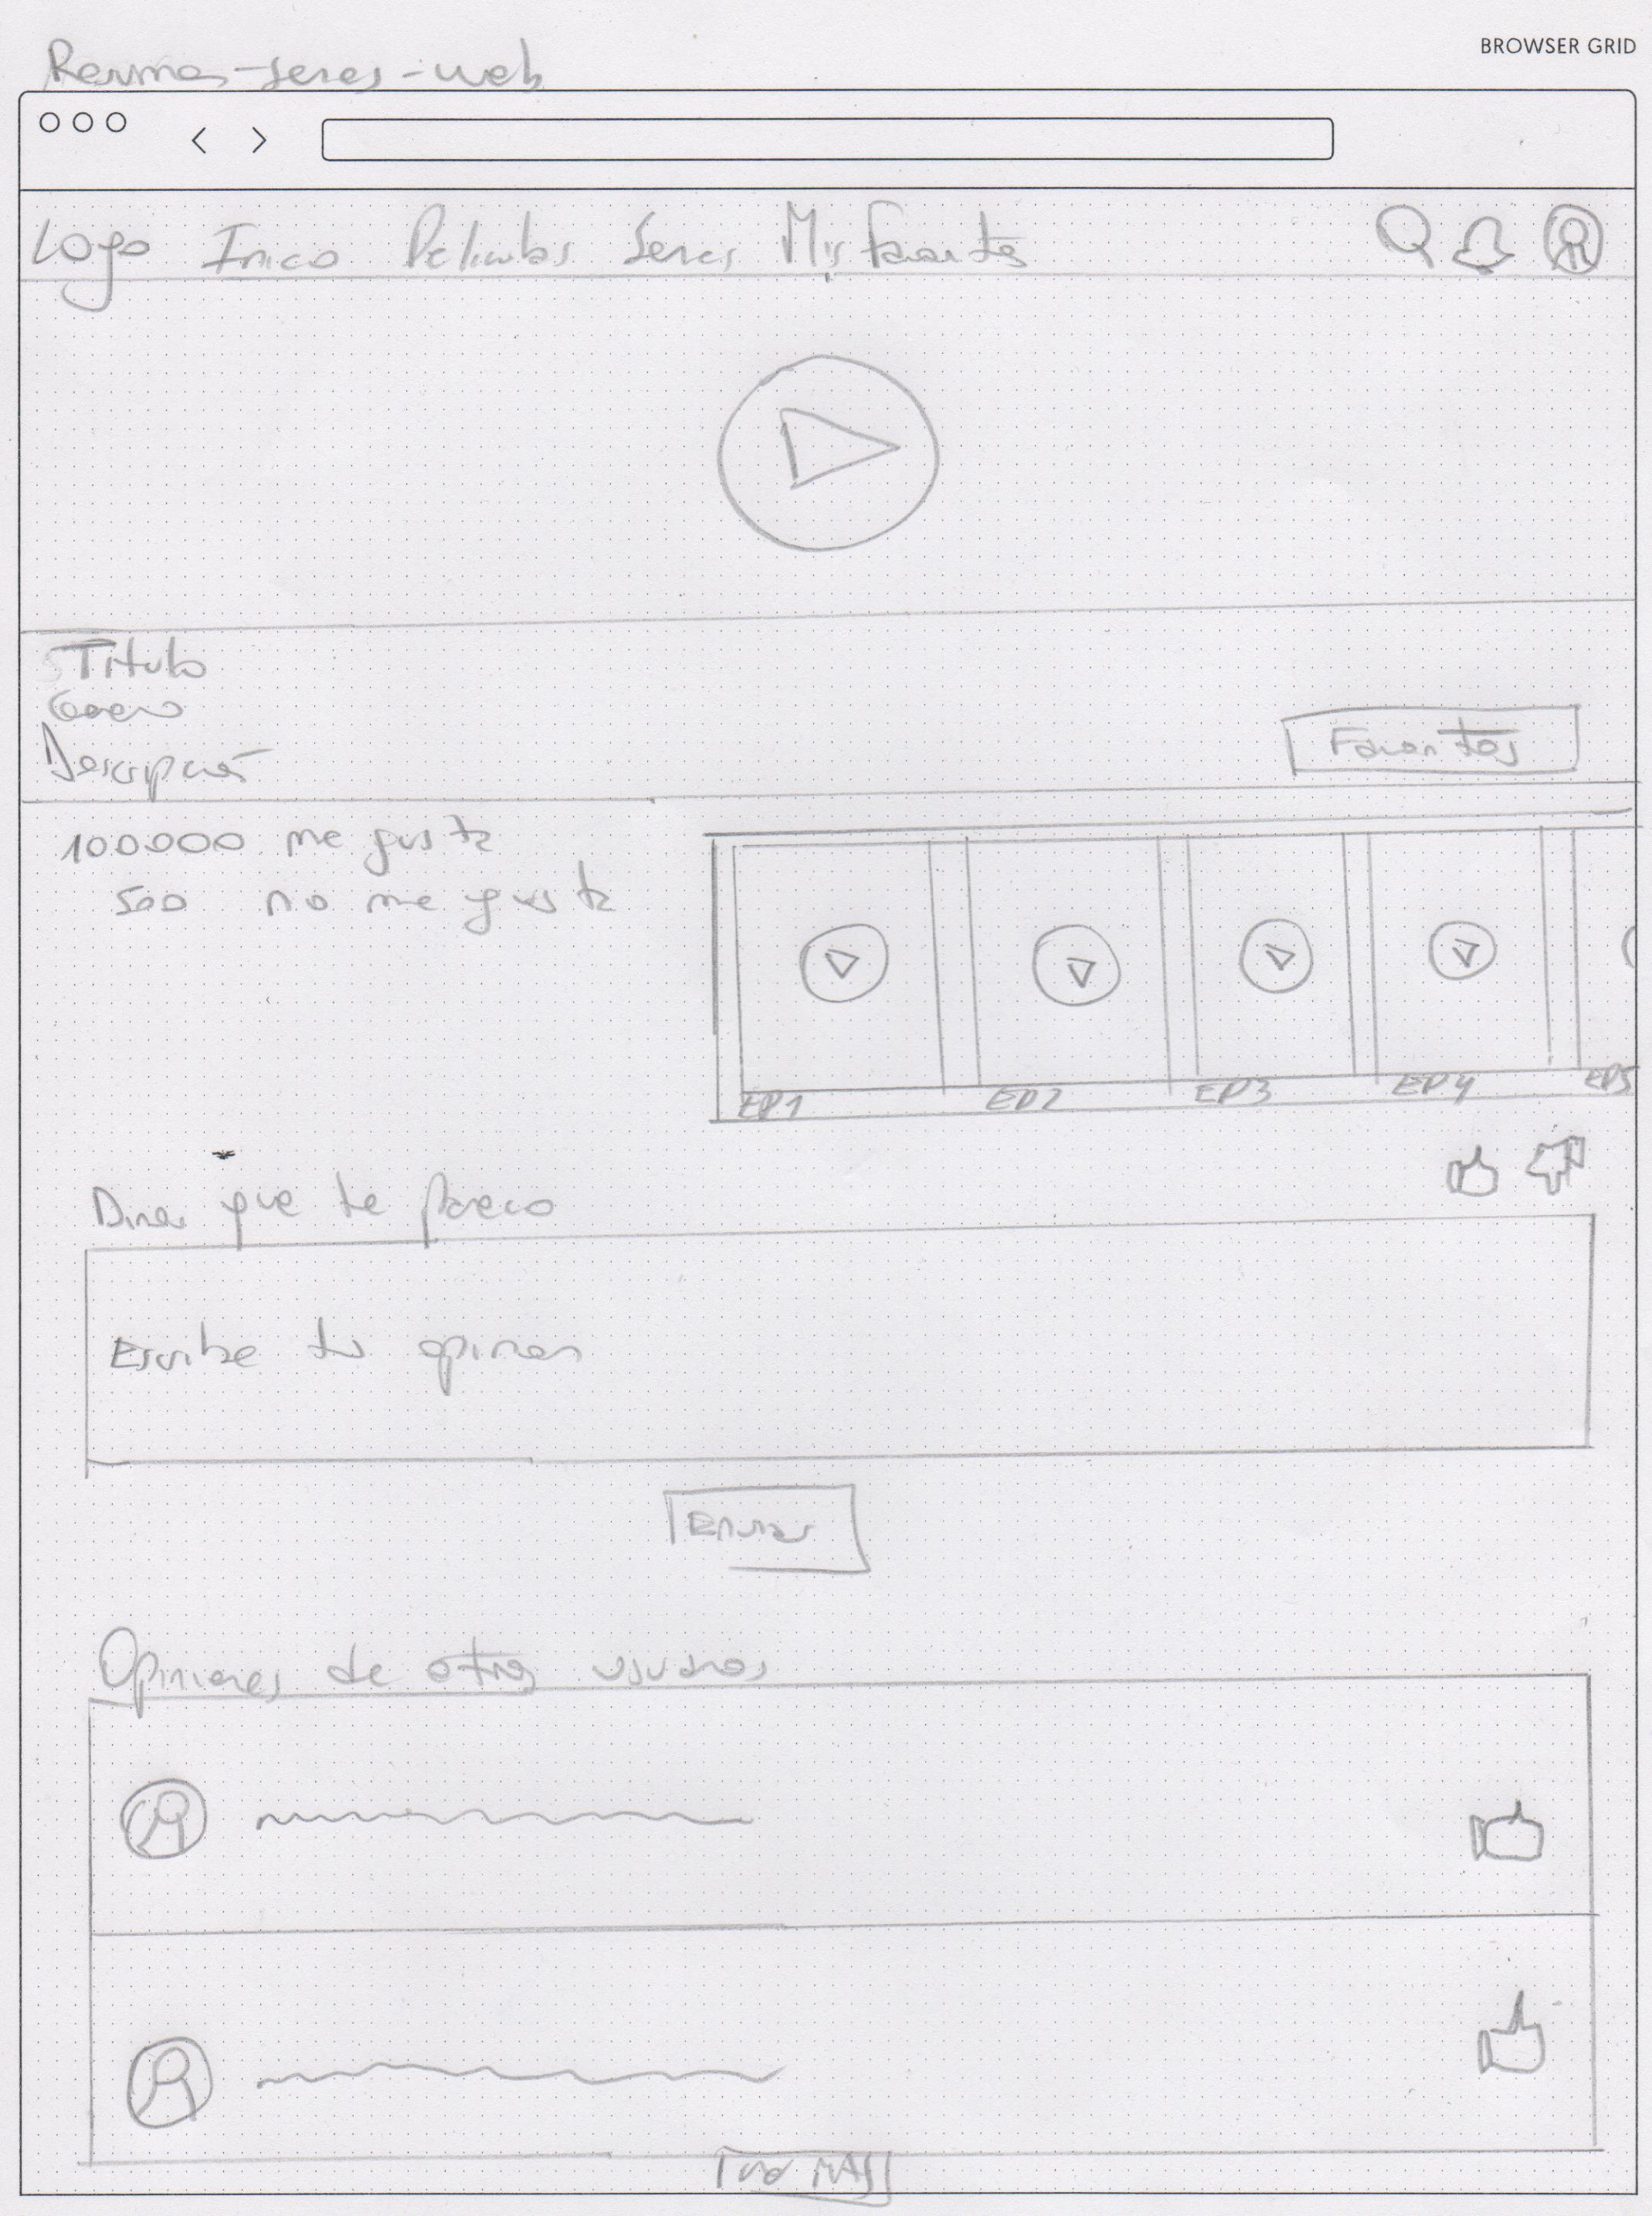 BROWSER GRID
Reviews-series-web
Logo Inicio Peliculas Series Mis favoritos
Titulo
Genero
Descripción
Favoritos
100.000 me gusta
500 no me gusta
EP1 EP2 EP3 EP4 EP5
que te parecio
Escribe tu opinion
Enviar
Opiniones de otros usuarios
MAS